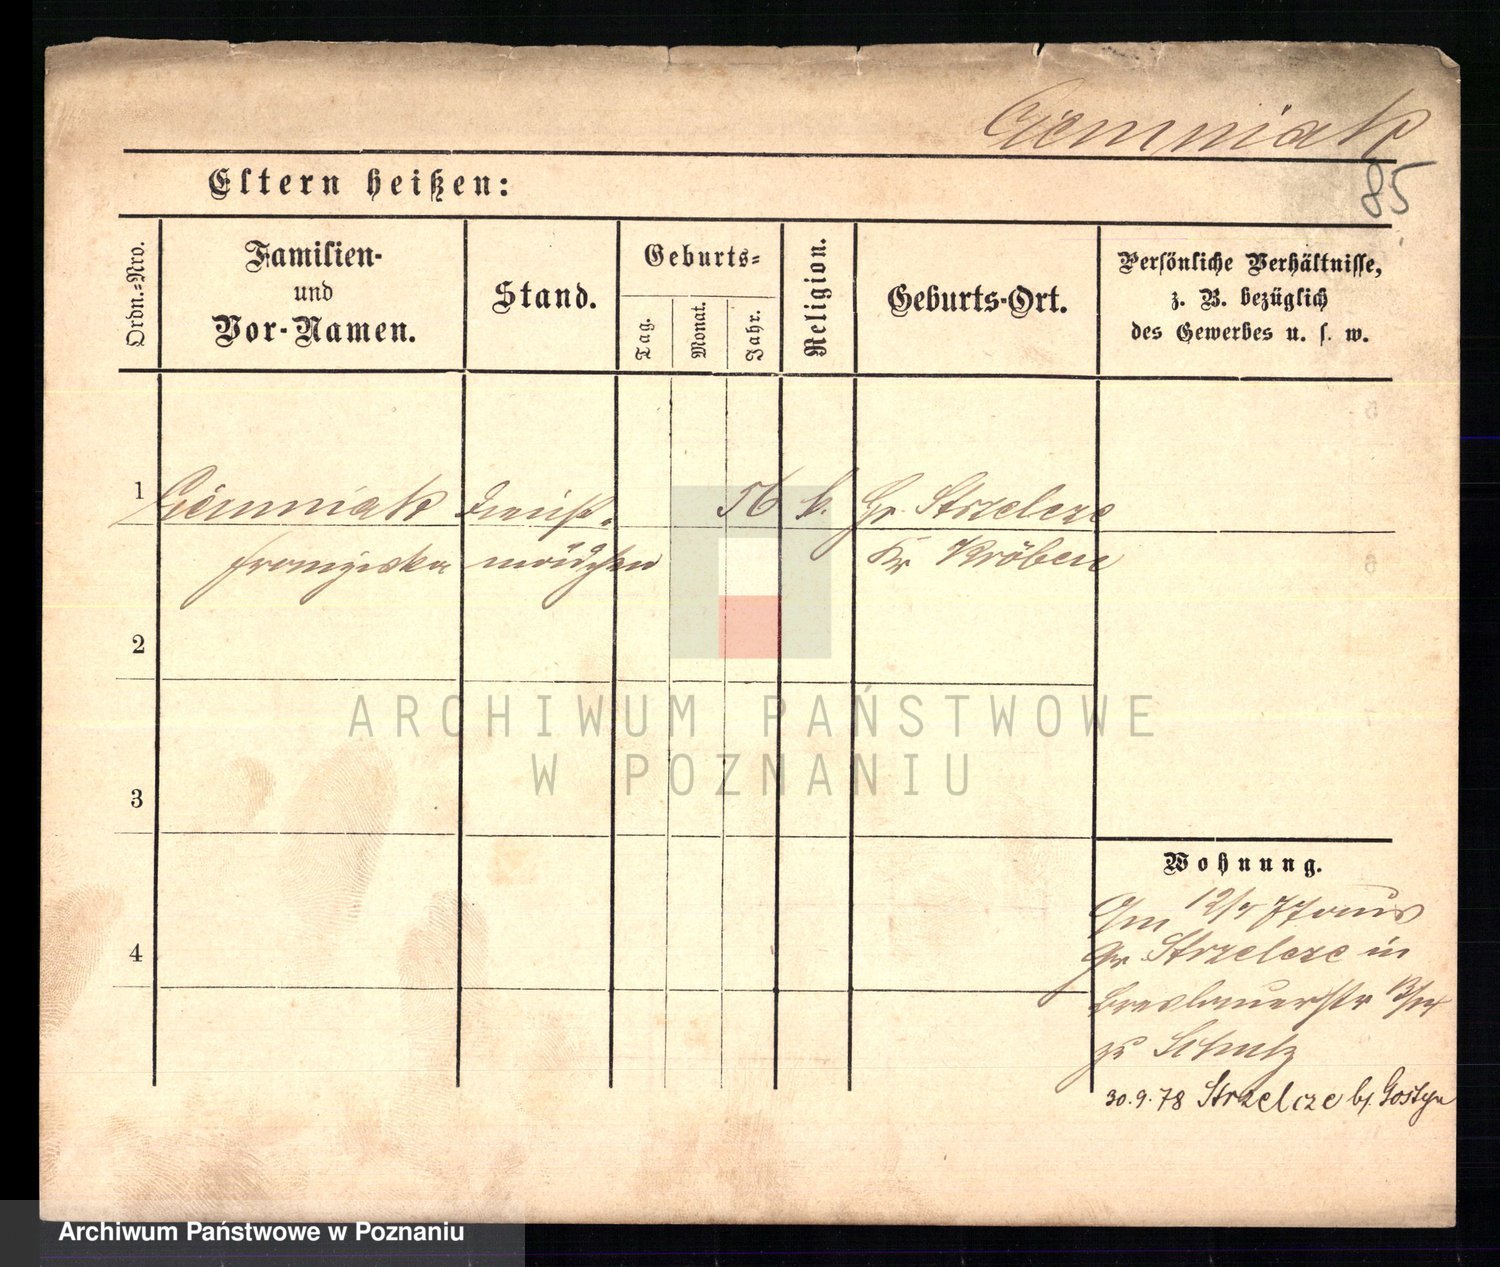 Ciemniak
85
Eltern heißen:
Ordn.-Nro.
Familien-
und
Vor-Namen.
Stand.
Geburts-
Tag.
Monat.
Jahr.
Religion.
Geburts-Ort.
Persönliche Verhältnisse,
z. B. bezüglich
des Gewerbes u. s. w.
1 Ciemniak Dienst- 56 k. Gr. Strzelcze
Franziska mädchen Kr Kröben
2
3
4
Wohnung.
Am 12/4 77 aus
Gr Strzelcze in
Breslauerstr 13/14
zu Schulz
30.9.78 Strzelcze b/ Gostyn
ARCHIWUM PAŃSTWOWE
W POZNANIU
Archiwum Państwowe w Poznaniu